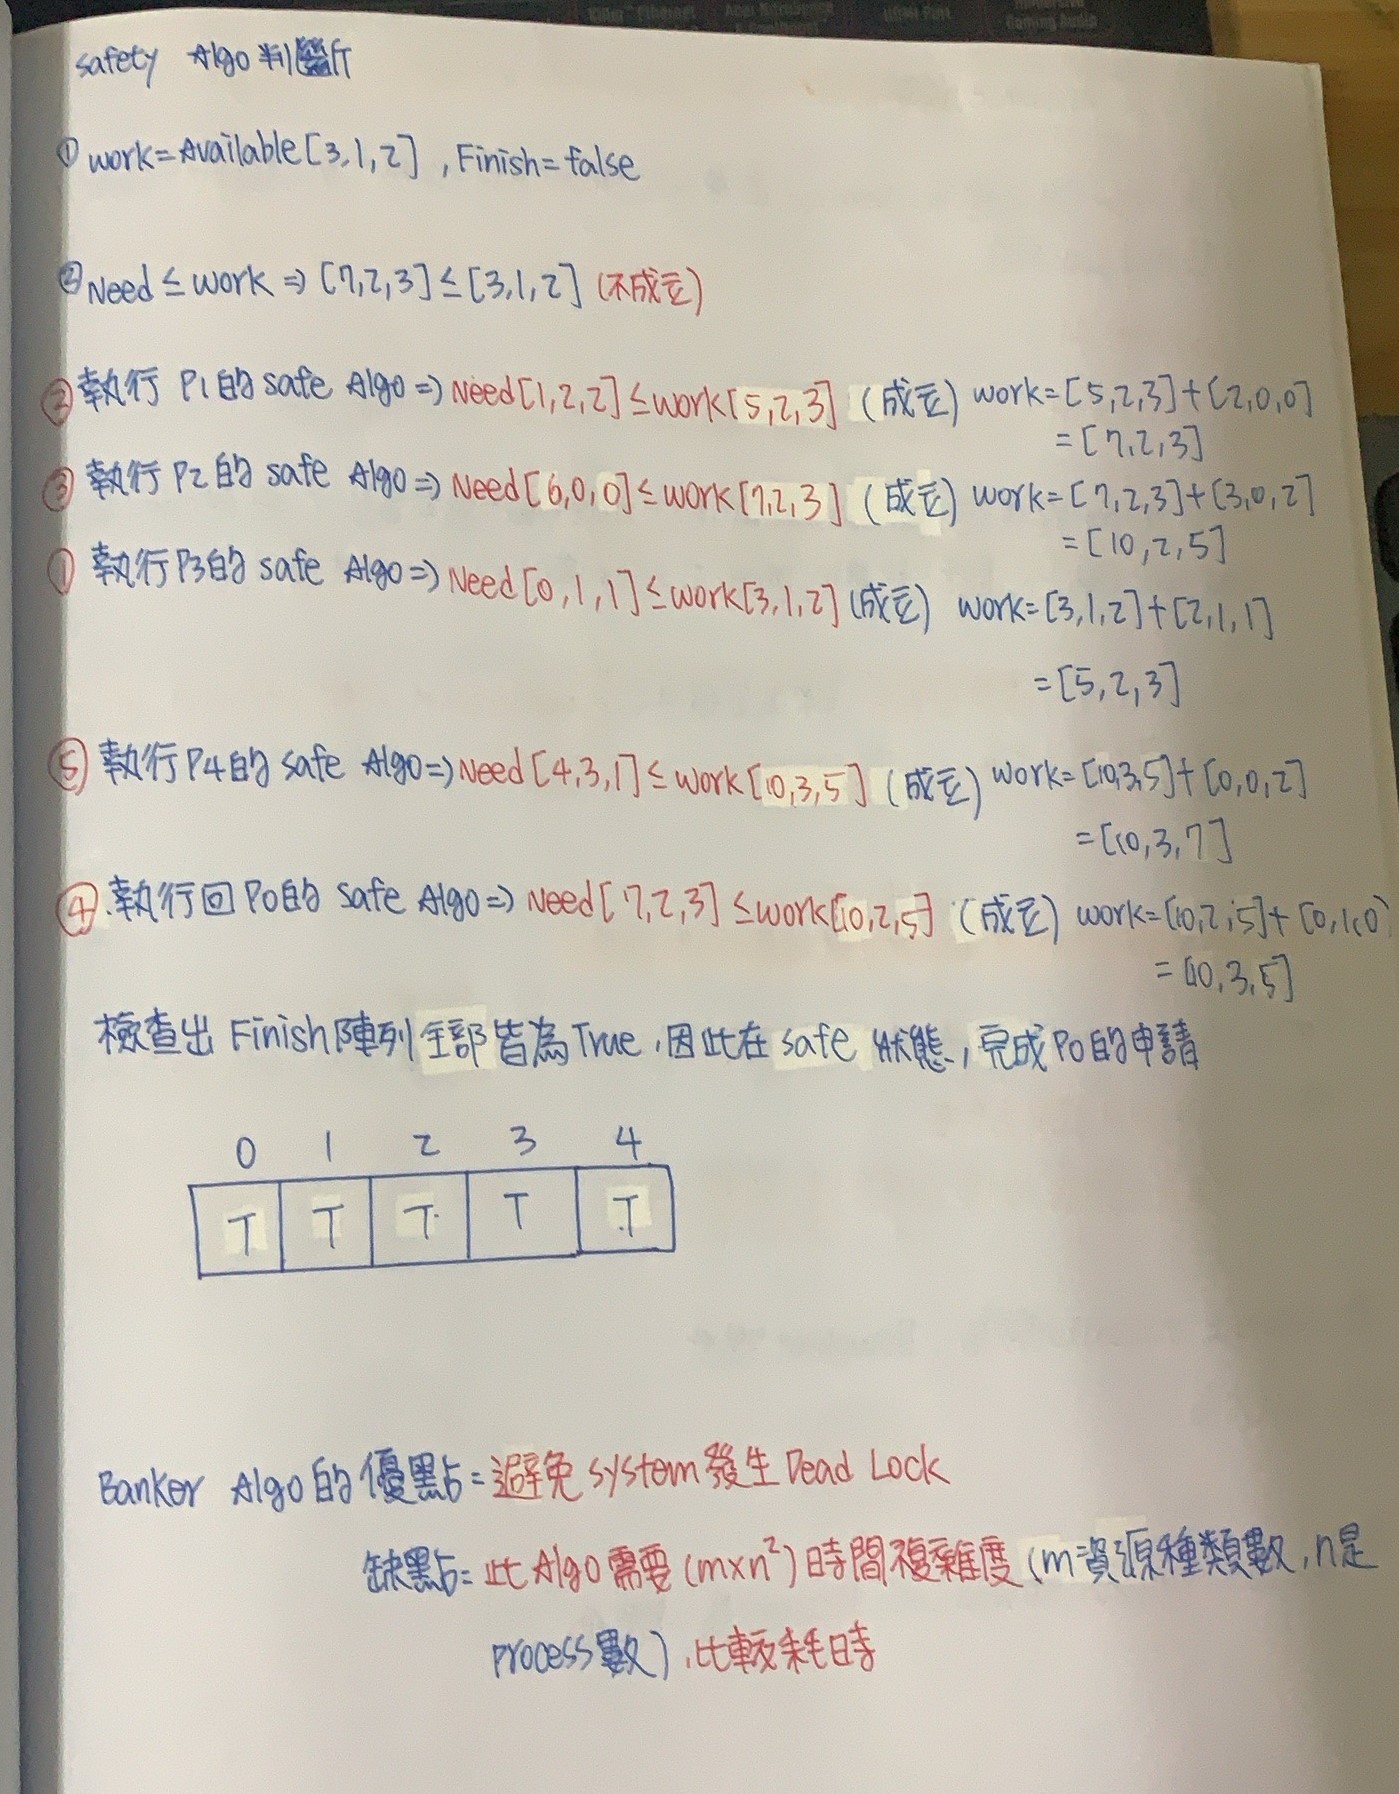 Killer Ethernet
Gaming Audio
safety Algo 判斷
① work=Available[3,1,2] , Finish=false
② Need≤work⇒[7,2,3]≤[3,1,2] (不成立)
② 執行 P1的 safe Algo⇒Need[1,2,2]≤work[5,2,3] (成立) work=[5,2,3]+[2,0,0]
=[7,2,3]
③ 執行 P2的 safe Algo⇒Need[6,0,0]≤work[7,2,3] (成立) work=[7,2,3]+[3,0,2]
=[10,2,5]
① 執行P3的 safe Algo⇒Need[0,1,1]≤work[3,1,2](成立) work=[3,1,2]+[2,1,1]
=[5,2,3]
⑤ 執行P4的 safe Algo⇒Need[4,3,1]≤work[10,3,5] (成立) work=[10,3,5]+[0,0,2]
=[10,3,7]
④.執行回P0的 safe Algo⇒Need[7,2,3]≤work[10,2,5] (成立) work=[10,2,5]+[0,1,0]
=[10,3,5]
檢查出 Finish陣列全部皆為True,因此在safe 狀態,完成P0的申請
0 1 2 3 4
T T T T T
Banker Algo的優點=避免system發生Dead Lock
缺點=此Algo需要(m×n²)時間複雜度(m資源種類數,n是
process數),比較耗時